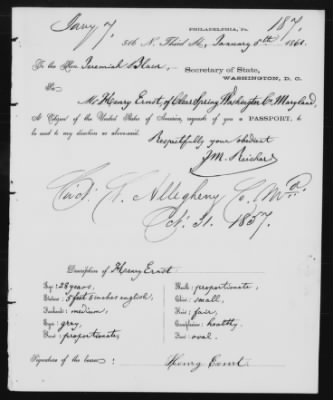 Jany 7.
187.
PHILADELPHIA, Pa.
516 N. Third St., January 5th 1861.
To the Hon. Jeremiah Black,
Secretary of State,
WASHINGTON, D. C.
Sir:
Mr Henry Ernst, of Clear Spring Washington Co. Maryland,
A Citizen of the United States of America, requests of you a PASSPORT, to
be sent to my direction as above said.
Respectfully your obedient
J. M. Reichard
Allegheny Co. Md.
1857.
Description of Henry Ernst
Age: 28 years.
Stature: 5 feet 8 inches english,
Forehead: medium,
Eyes: gray,
Nose: proportionate,
Mouth: proportionate,
Chin: small,
Hair: fair,
Complexion: healthy.
Face: oval.
Signature of the bearer:
Henry Ernst